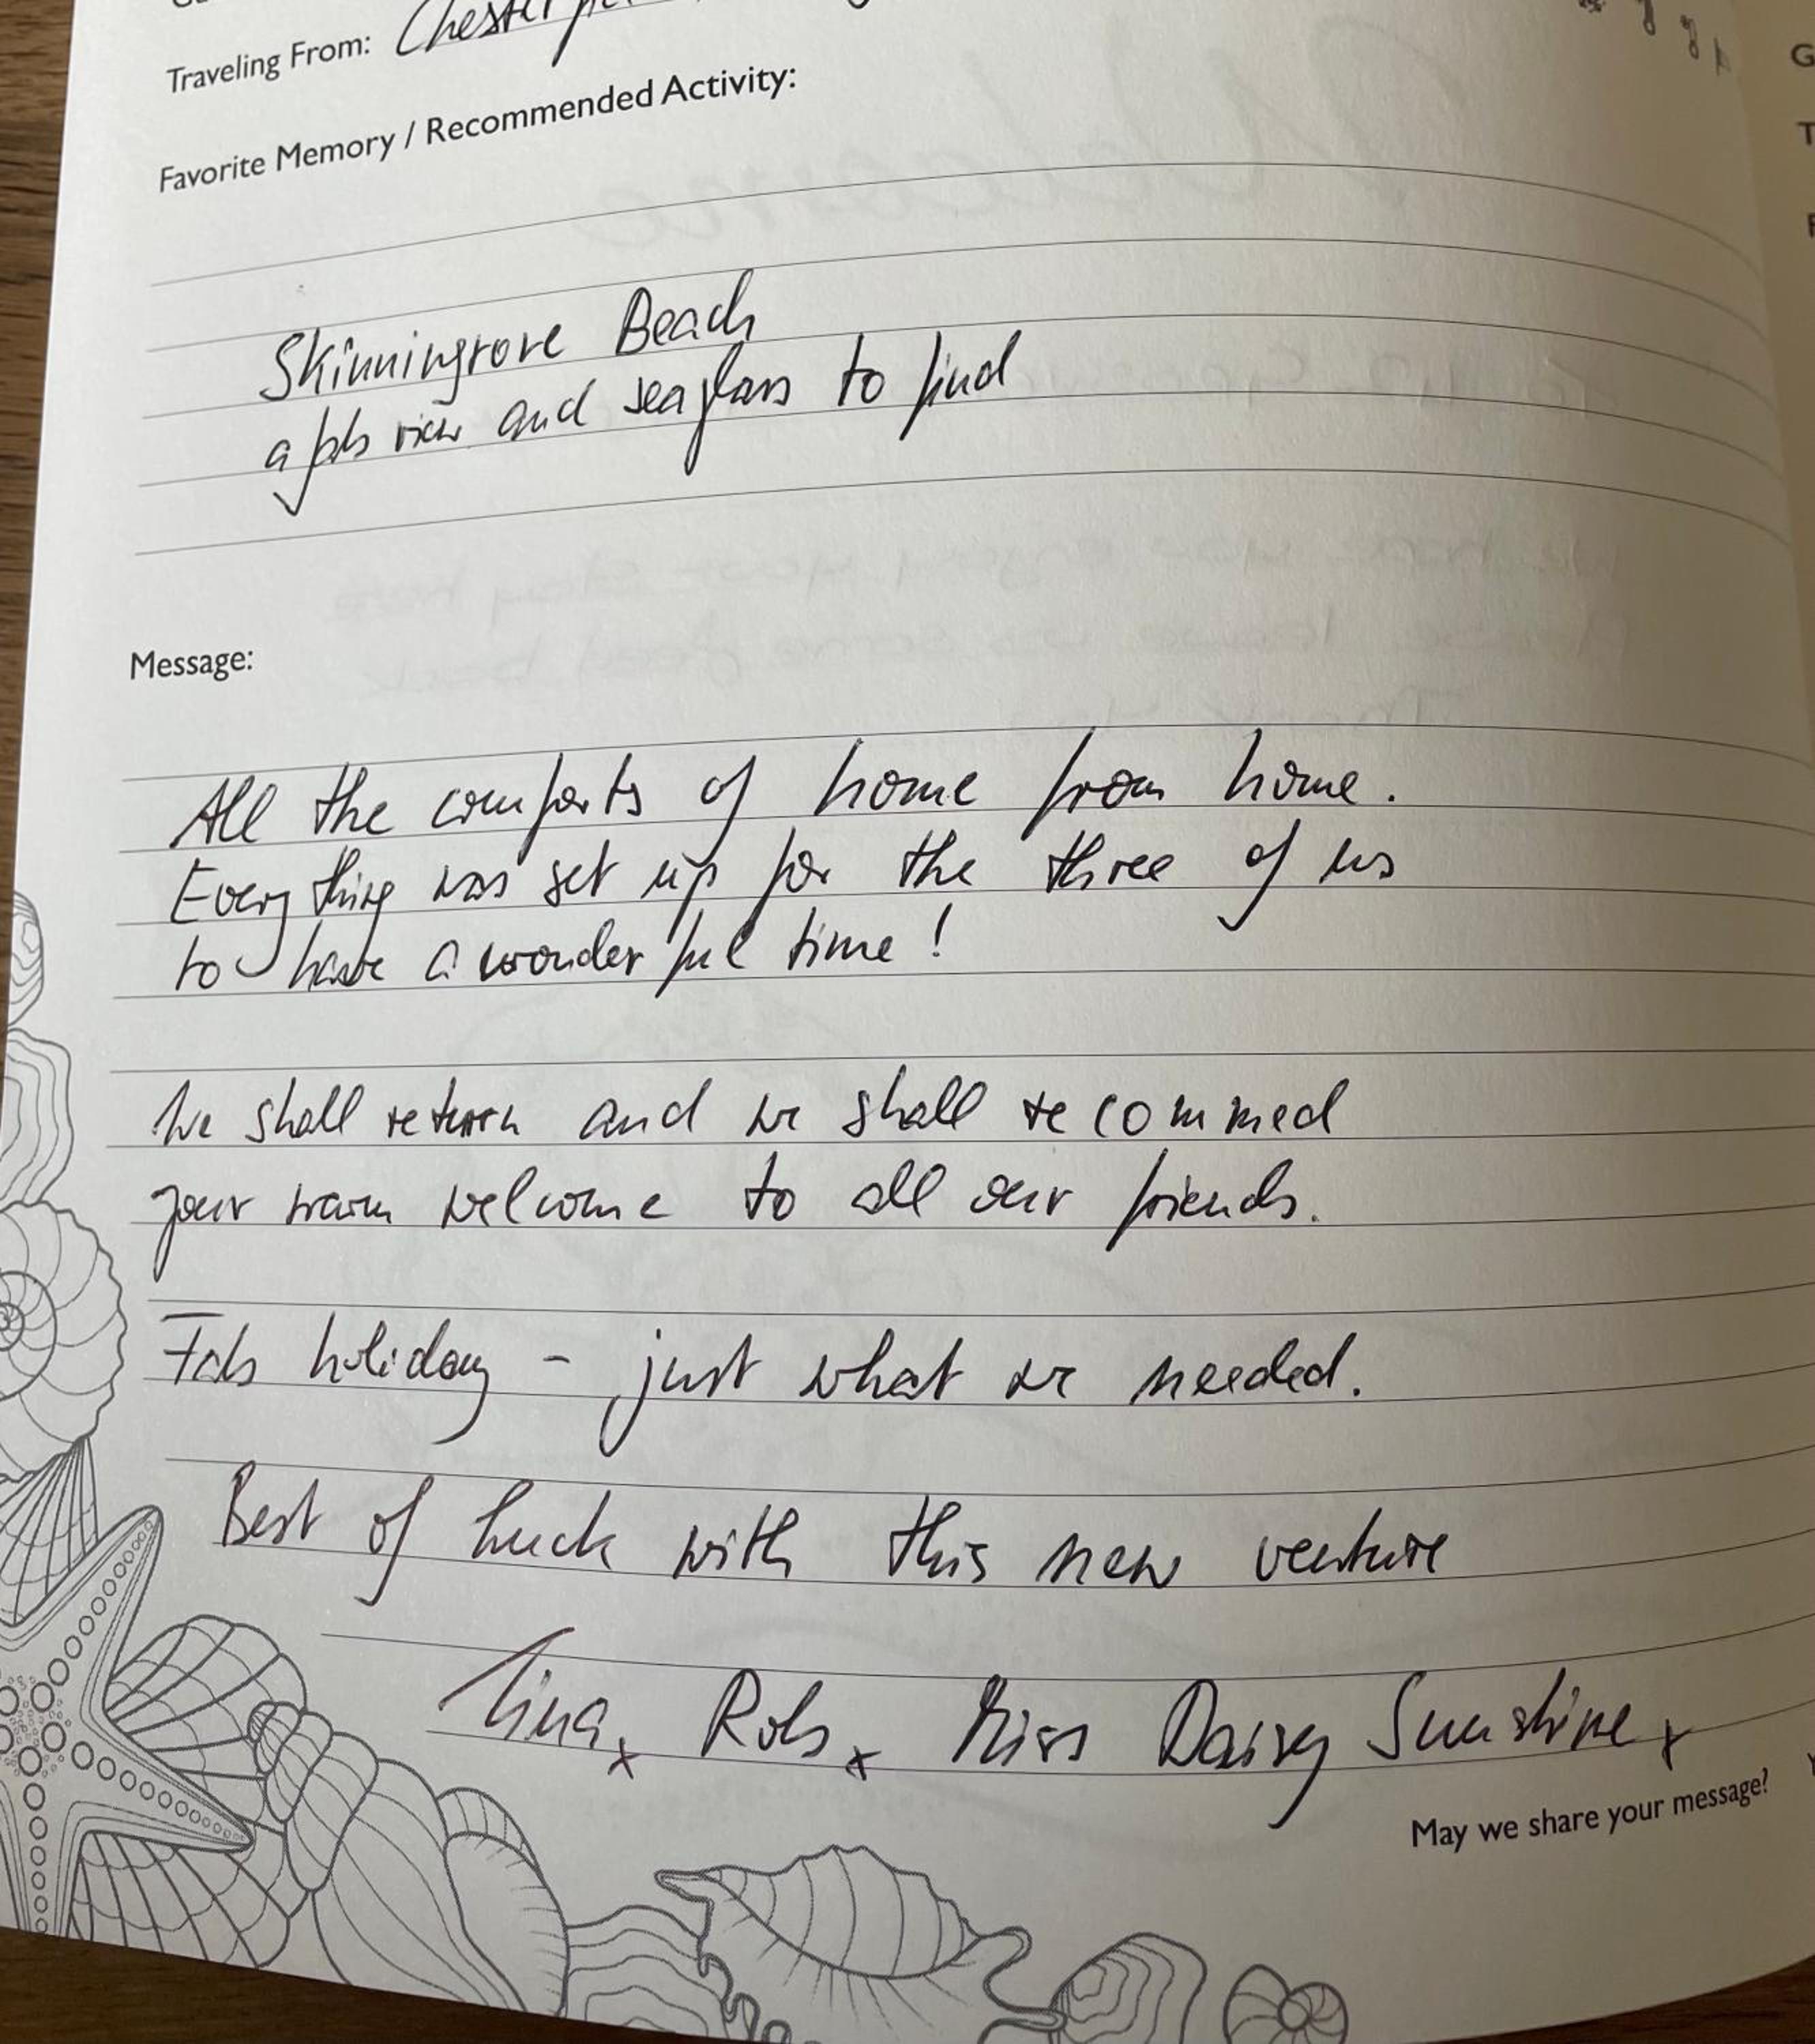 Traveling From:
Favorite Memory / Recommended Activity:
Skinningrove Beach
a fab view and seaglass to find
Message:
All the comforts of home from home.
Everything was set up for the three of us
to have a wonderful time!
We shall return and we shall recommed
your warm welcome to all our friends.
Fab holiday - just what we needed.
Best of luck with this new venture
Tina x Rob x Miss Daisy Sunshine x
May we share your message?